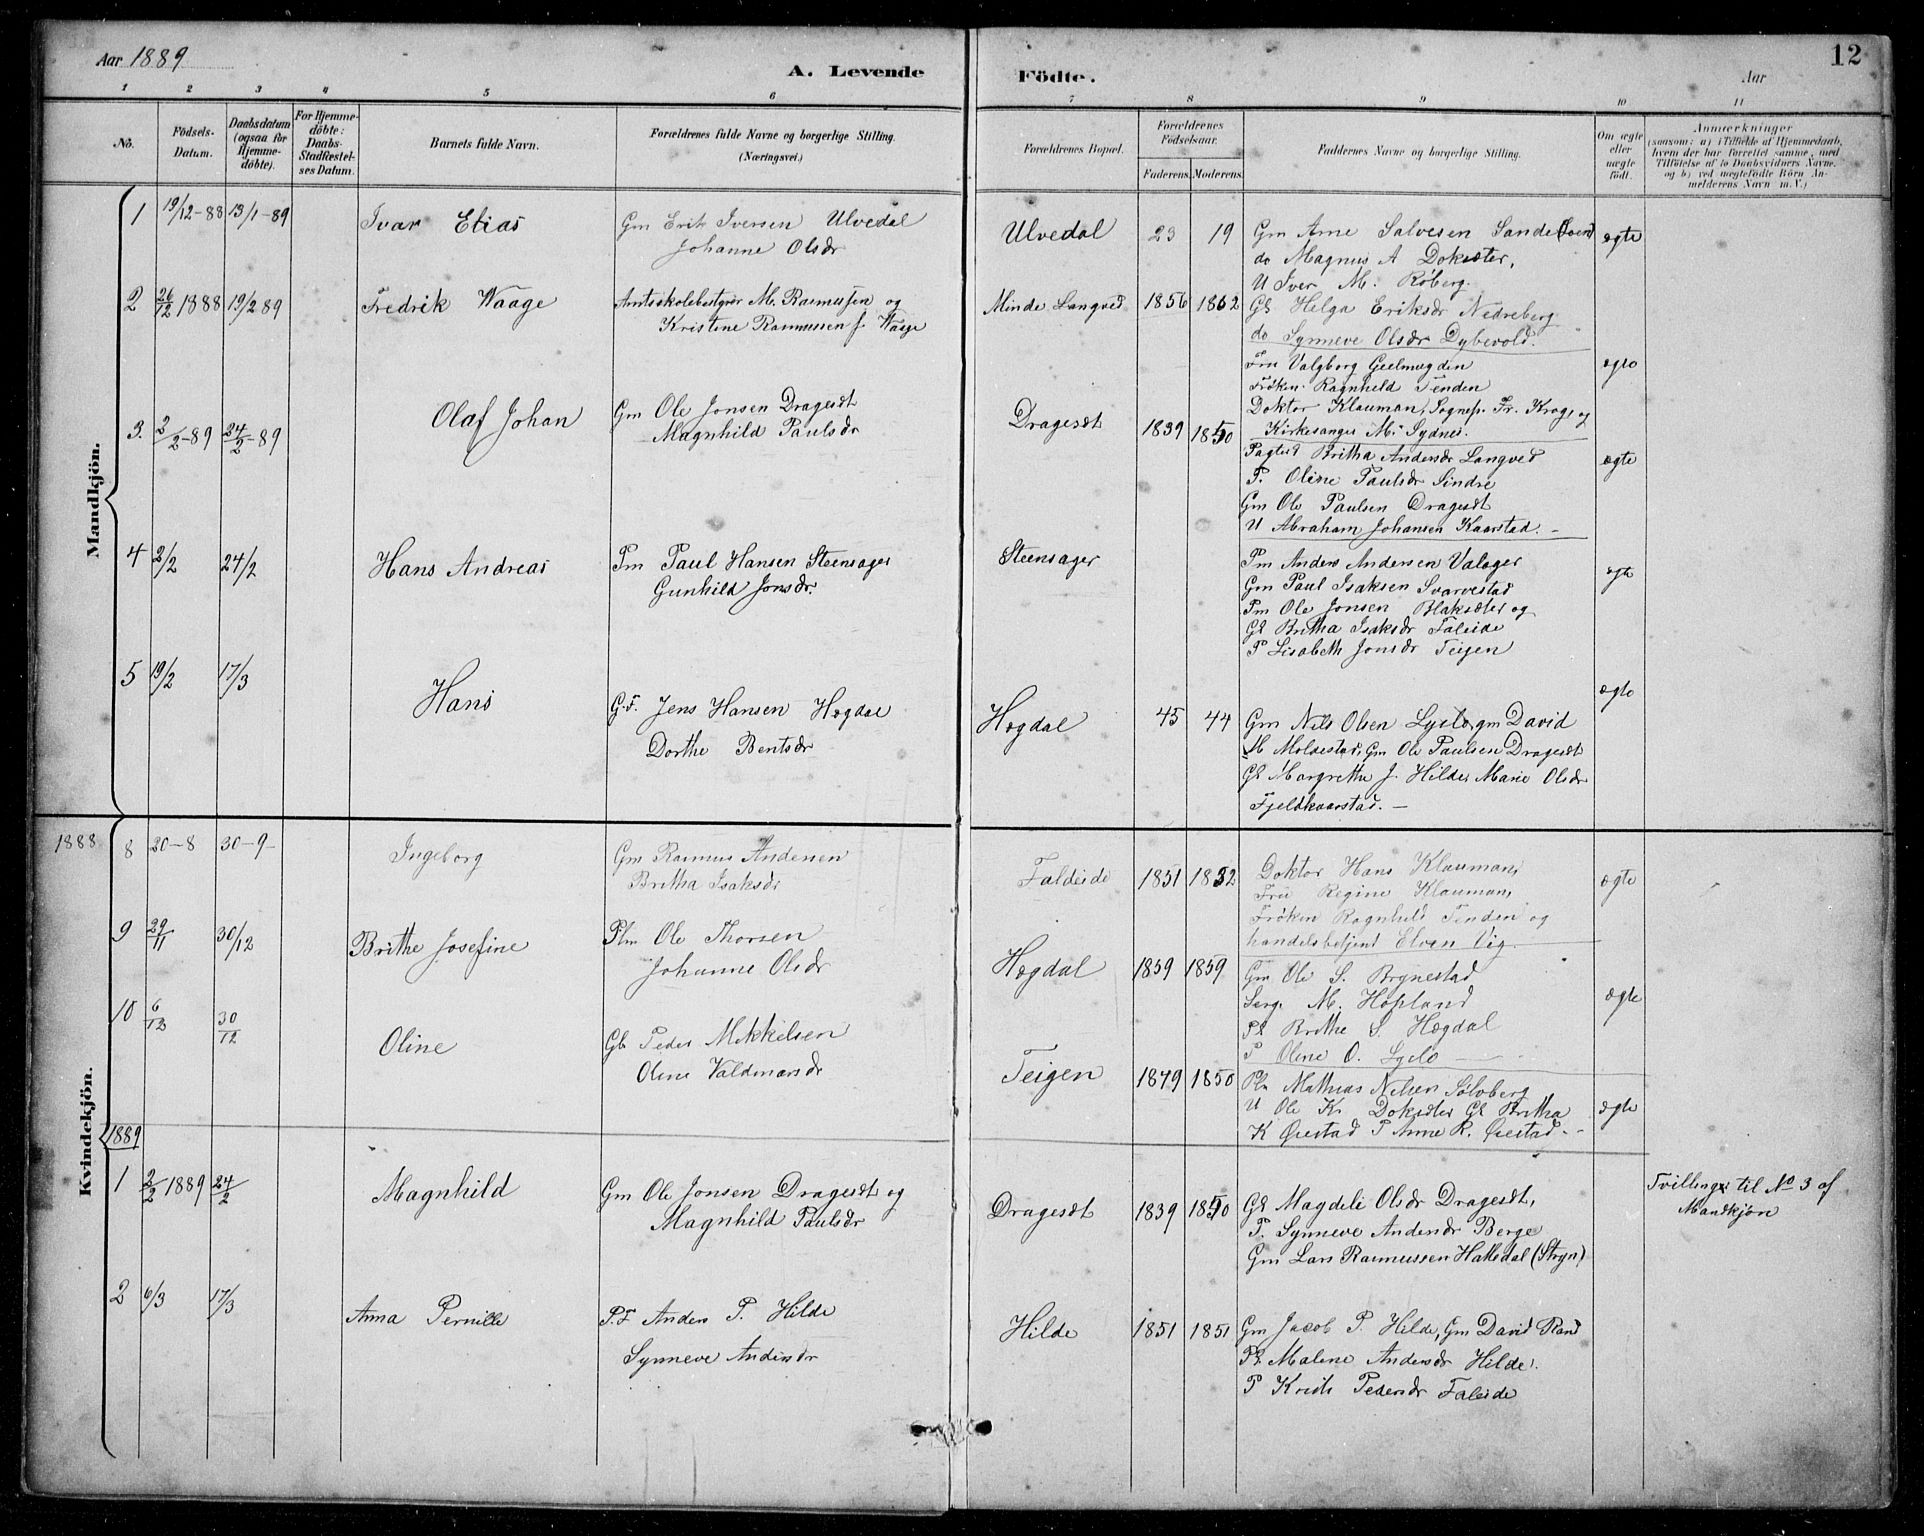 Aar 1889
A. Levende Födte.
Aar
12
1 2 3 4 5 6 7 8 9 10 11
No.
Födsels-Datum.
Daabsdatum (ogsaa for Hjemmedöbte).
For Hjemmedöbte: Daabs-Stadfestelses Datum.
Barnets fulde Navn.
Forældrenes fulde Navne og borgerlige Stilling. (Næringsvei.)
Forældrenes Bopæl.
Forældrenes Födselsaar.
Faderens. Moderens.
Faddernes Navne og borgerlige Stilling.
Om ægte eller uægte födt.
Anmærkninger
(saasom: a) i Tilfælde af Hjemmedaab, hvem der har forrettet samme, med Tilföielse af to Daabsvidners Navne, og b) ved uægtefödte Börn Anmelderens Navn m. V.)
Mandkjön.
1 19/12-88 13/1-89 Ivar Elias
Gm Erik Iversen Ulvedal
Johanne Olsdr
Ulvedal 23 19
Gm Arne Salvesen Sande
do Magnus A Doksæter,
U Iver M. Röberg.
Gk Helga Eriksdr Nedreberg
do Synneve Olsdr Dybevold.
ægte
2 26/12 1888 19/2 89 Fredrik Waage
Amtsskolebestyrer M. Rasmussen og
Kristine Rasmussen f. Waage
Minde Langved 1856 1862
Fru Valgborg Geelmuyden
Fröken Ragnhild Tenden
Doktor Klauman, Sognep. Fr. Krog, og
Kirkesanger M. Sydnes.
ægte
3. 2/2-89 24/2-89 Olaf Johan
Gm Ole Jonsen Dragesæt
Magnhild Paulsdr
Dragesæt 1839 1850
Britha Andersdr Langved
P. Oline Paulsdr Sindre
Gm Ole Paulsen Dragesæt
U Abraham Johansen Kaarstad. -
ægte
4 2/2 24/2 Hans Andreas
Pm Paul Hansen Steensager
Gunhild Jonsdr.
Steensager
Pm Anders Andersen Valager
Gm Paul Isaksen Svarvestad
Pm Ole Jonsen Blaksæter og
Gk Britha Isaksdr Faleide
P Lisabeth Jonsdr Teigen
ægte
5 19/2 17/3 Hans
G.F. Jens Hansen Hogdal
Dorthe Bentsdr
Hogdal 45 44
Gm Nils Olsen Lyslo, gm David
M Moldestad, Gm Ole Paulsen Dragesæt
Gk Margrethe J. Hilde, Marie Olsdr
Fjeldkaarstad. -
ægte
Kvindekjön.
1888
8 30-8 30-9 Ingeborg
Gm Rasmus Andersen
Britha Isaksdr
Faleide 1851 1852
Doktor Hans Klauman,
Fru Regine Klauman,
Fröken Ragnhild Tenden og
handelsbetjent Elven Vig.
ægte
9 29/11 30/12 Brithe Josefine
Plm Ole Thorsen
Johanne Olsdr
Hogdal 1859 1859
Gm Ole S. Brynestad
Serg. M. Hopland
Pk Brithe S. Hogdal
P Oline O. Lyslo
ægte
10 6/12 30/12 Oline
Gb Peder Mikkelsen
Oline Valdmarsdr
Teigen 1849 1850
Plm Mathias Nelsen Sölvberg
U Ole K. Doksæter Gk Britha
K Örestad P Anne R. Örestad. -
ægte
1889
1 2/2 1889 24/2 Magnhild
Gm Ole Jonsen Dragesæt og
Magnhild Paulsdr
Dragesæt 1839 1850
Gk Magdeli Olsdr Dragesæt,
P. Synneve Andersdr Berge
Gm Lars Rasmussen Hakedal (Stryn)
Tvilling til No 3 af
Mandkjön
2 6/3 17/3 Anna Pernille
P.F Anders P. Hilde
Synneve Andersdr
Hilde 1851 1851
Gm Jacob P. Hilde, Gm David Rand
Pk Malene Andersdr Hilde.
P Kristi Pedersdr Faleide